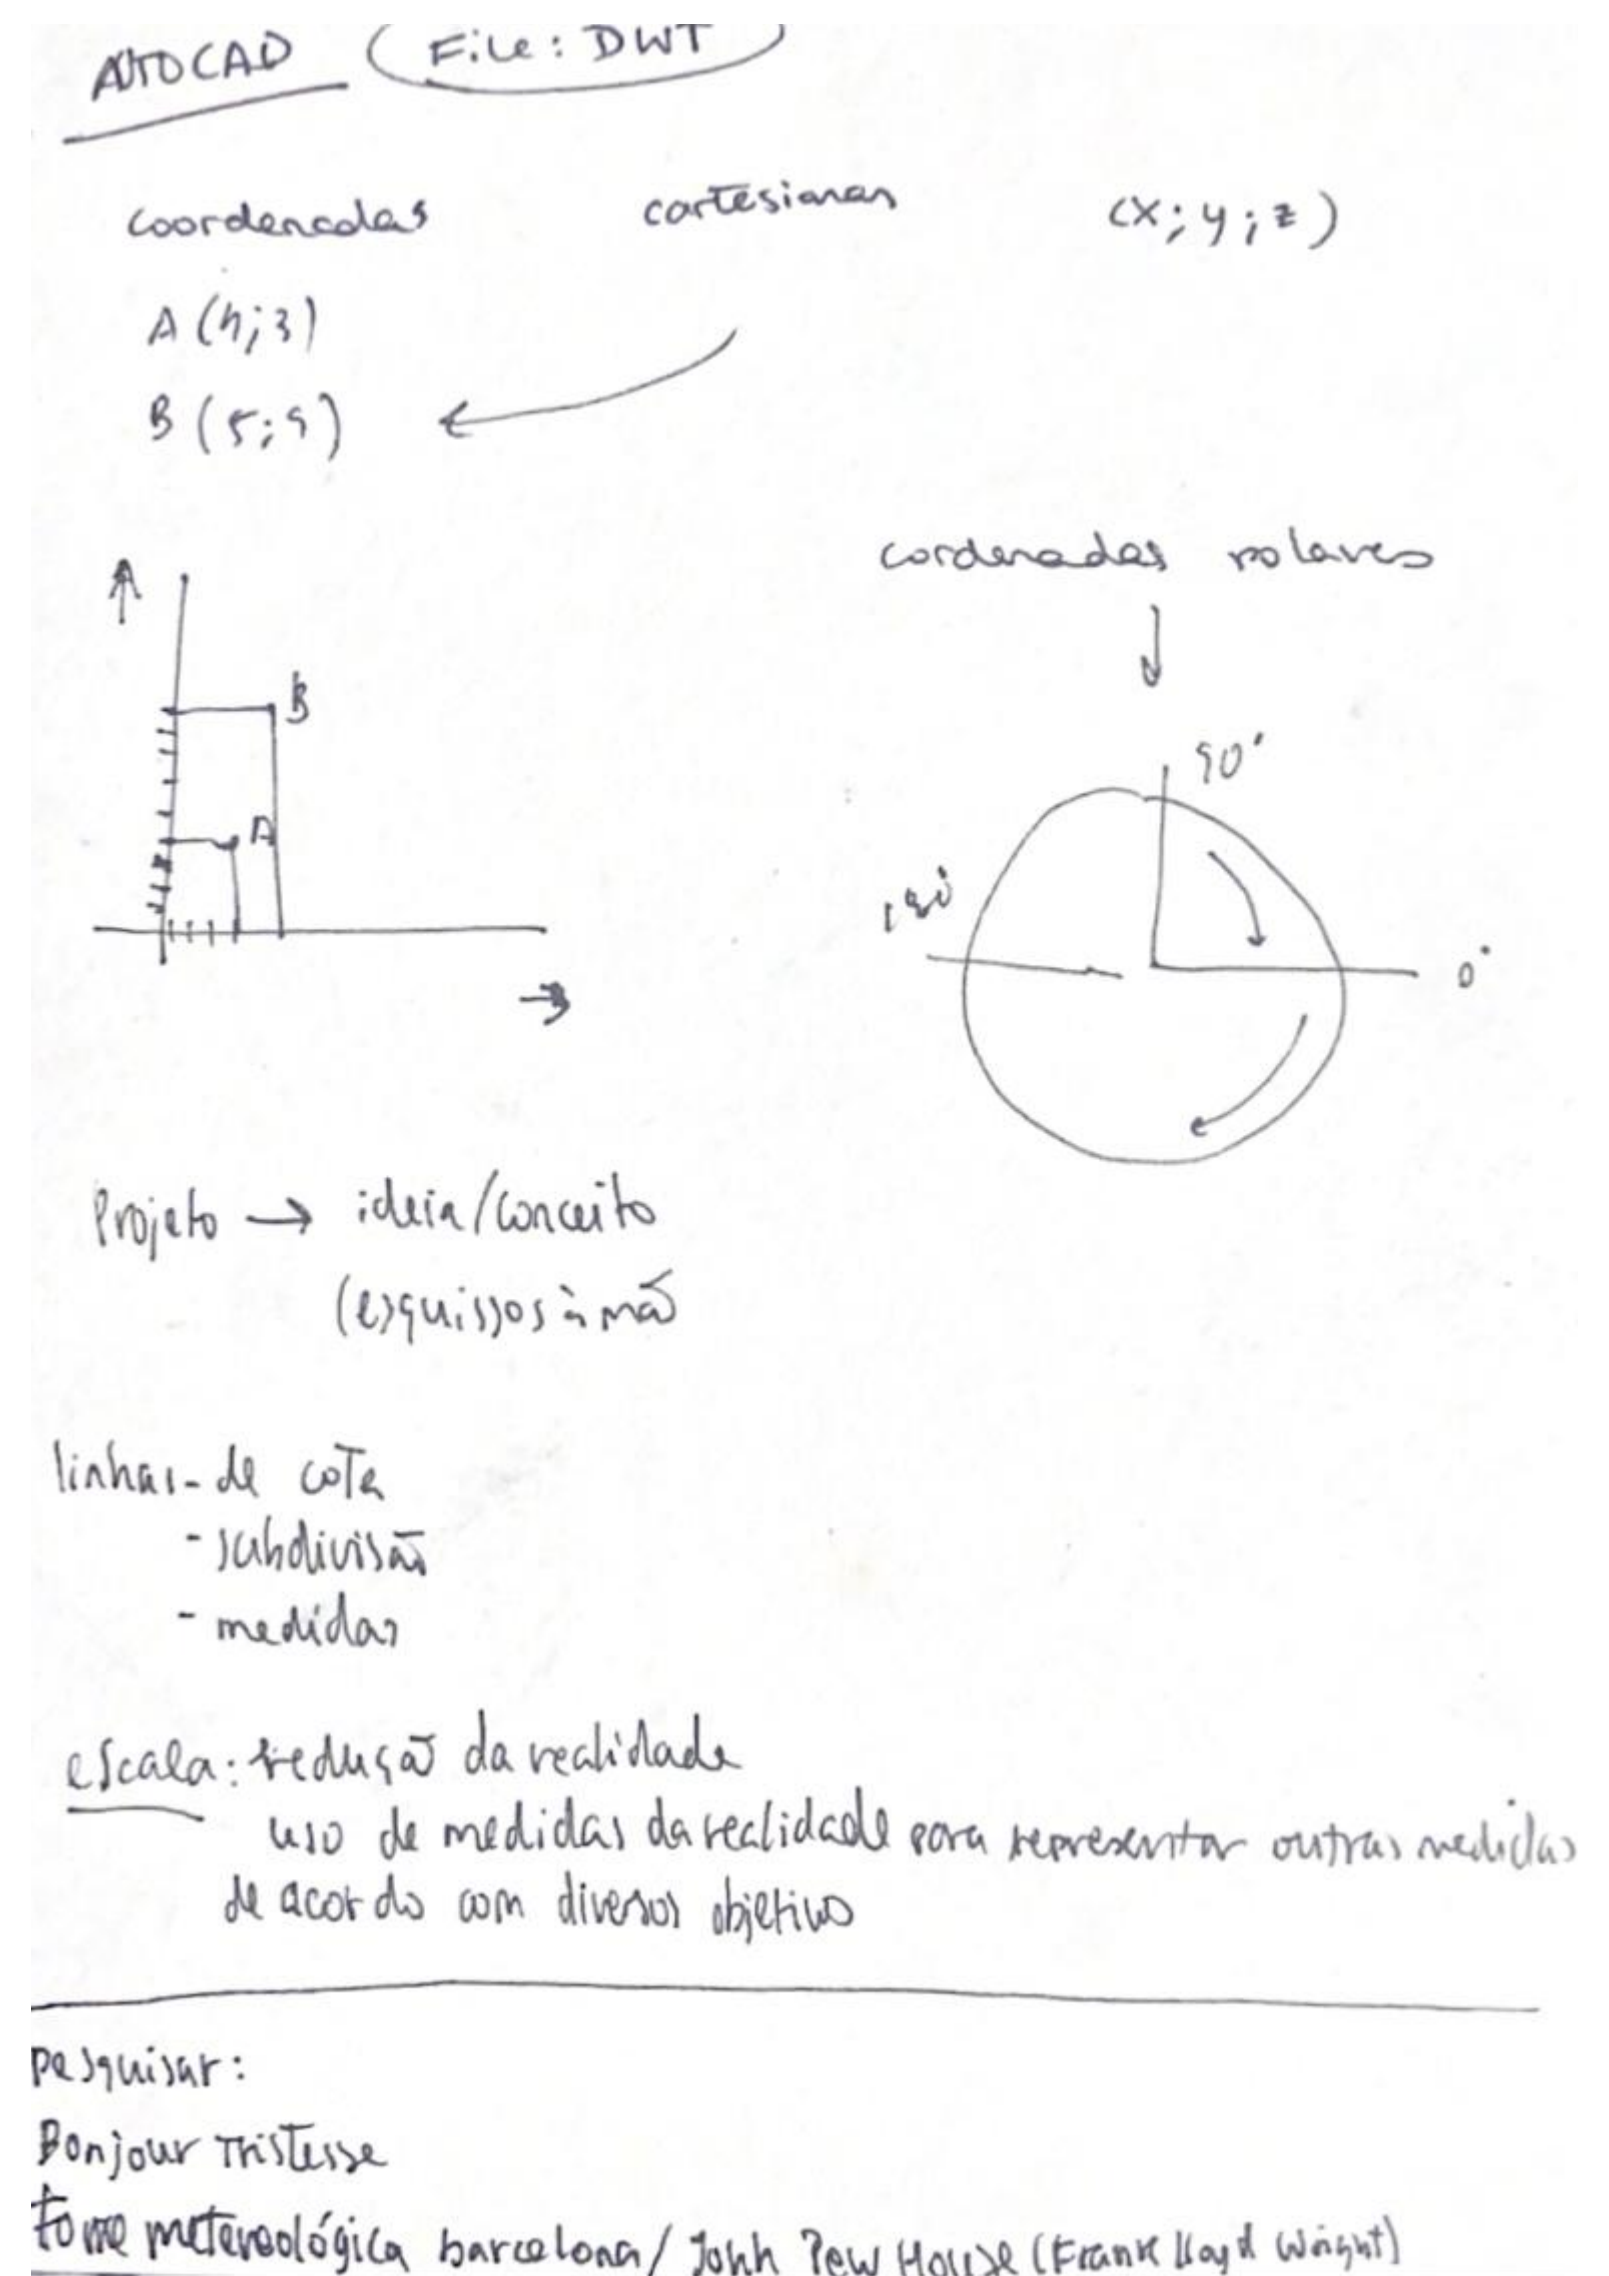 AUTOCAD (File: DWT)
coordenadas cartesianas (x; y; z)
A (4; 3)
B (5; 9)
cordenadas polares
B
90°
A
180°
0°
Projeto → ideia/conceito
(esquissos à mão
linhas - de cota
- subdivisão
- medidas
escala: redução da realidade
uso de medidas da realidade para representar outras medidas
de acordo com diversos objetivos
pesquisar:
Bonjour Tristesse
torre metereológica barcelona / John Pew House (Frank Lloyd Wright)